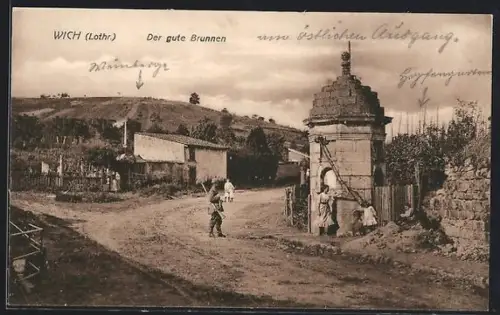 WICH (Lothr.)
Der gute Brunnen
am östlichen Ausgang.
Weinberge
Hopfengarten